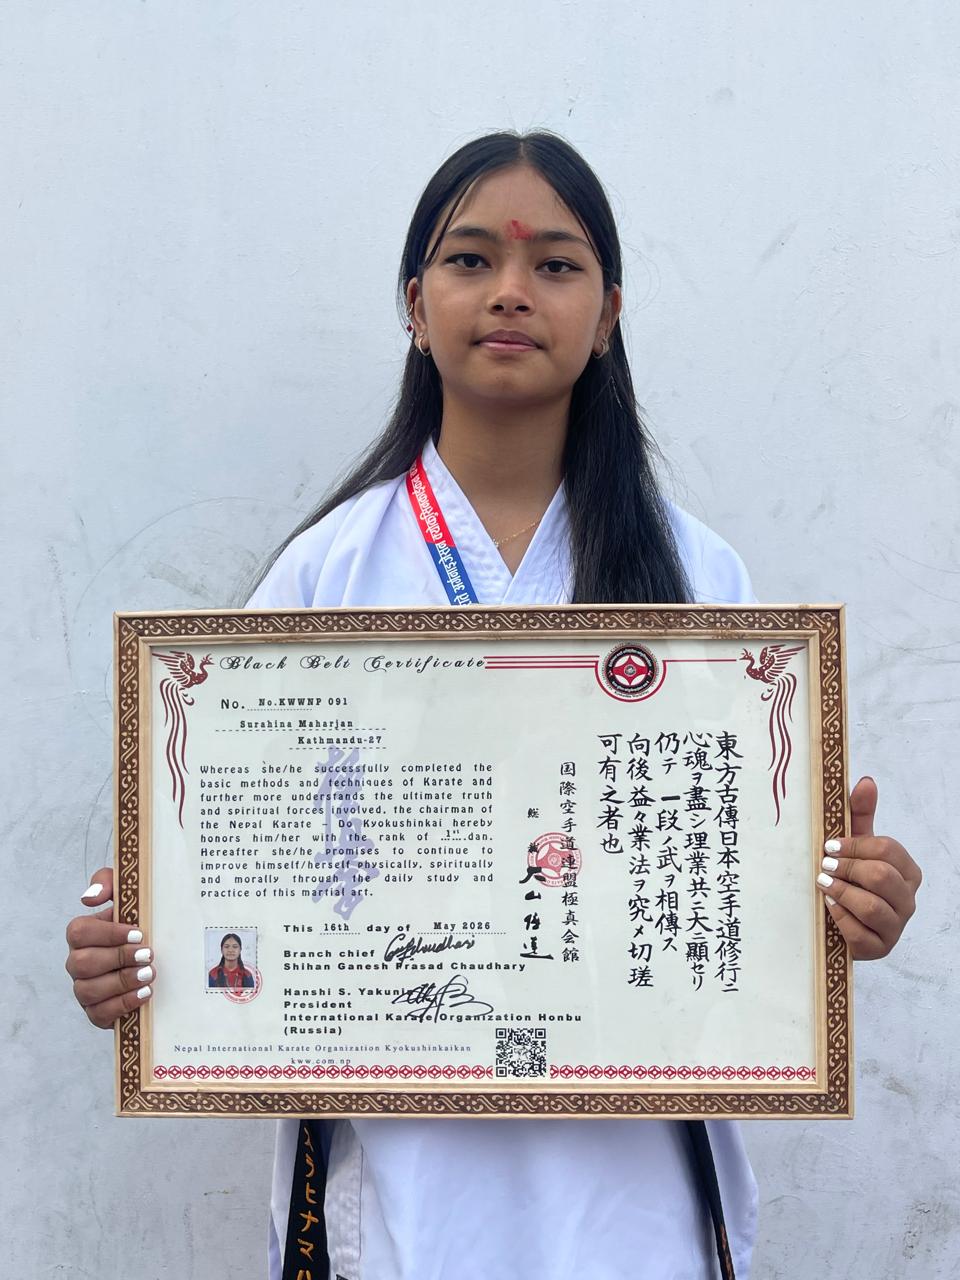 Black Belt Certificate
No. No.KWWNP 091
Surahina Maharjan
Kathmandu-27
Whereas she/he successfully completed the
basic methods and techniques of Karate and
further more understands the ultimate truth
and spiritual forces involved, the chairman of
the Nepal Karate – Do Kyokushinkai hereby
honors him/her with the rank of ..1st..dan.
Hereafter she/he promises to continue to
improve himself/herself physically, spiritually
and morally through the daily study and
practice of this martial art.
This 16th day of May 2026
Branch chief
Shihan Ganesh Prasad Chaudhary
Hanshi S. Yakunin
President
International Karate Organization Honbu
(Russia)
Nepal International Karate Organization Kyokushinkaikan
kww.com.np
東方古傳日本空手道修行ニ
心魂ヲ盡シ理業共ニ大ニ顯セリ
仍テ 一段ノ武ヲ相傳ス
向後益々業法ヲ究メ切瑳
可有之者也
国際空手道連盟極真会館
総裁 大山倍達
極真会
ラヒナマハ